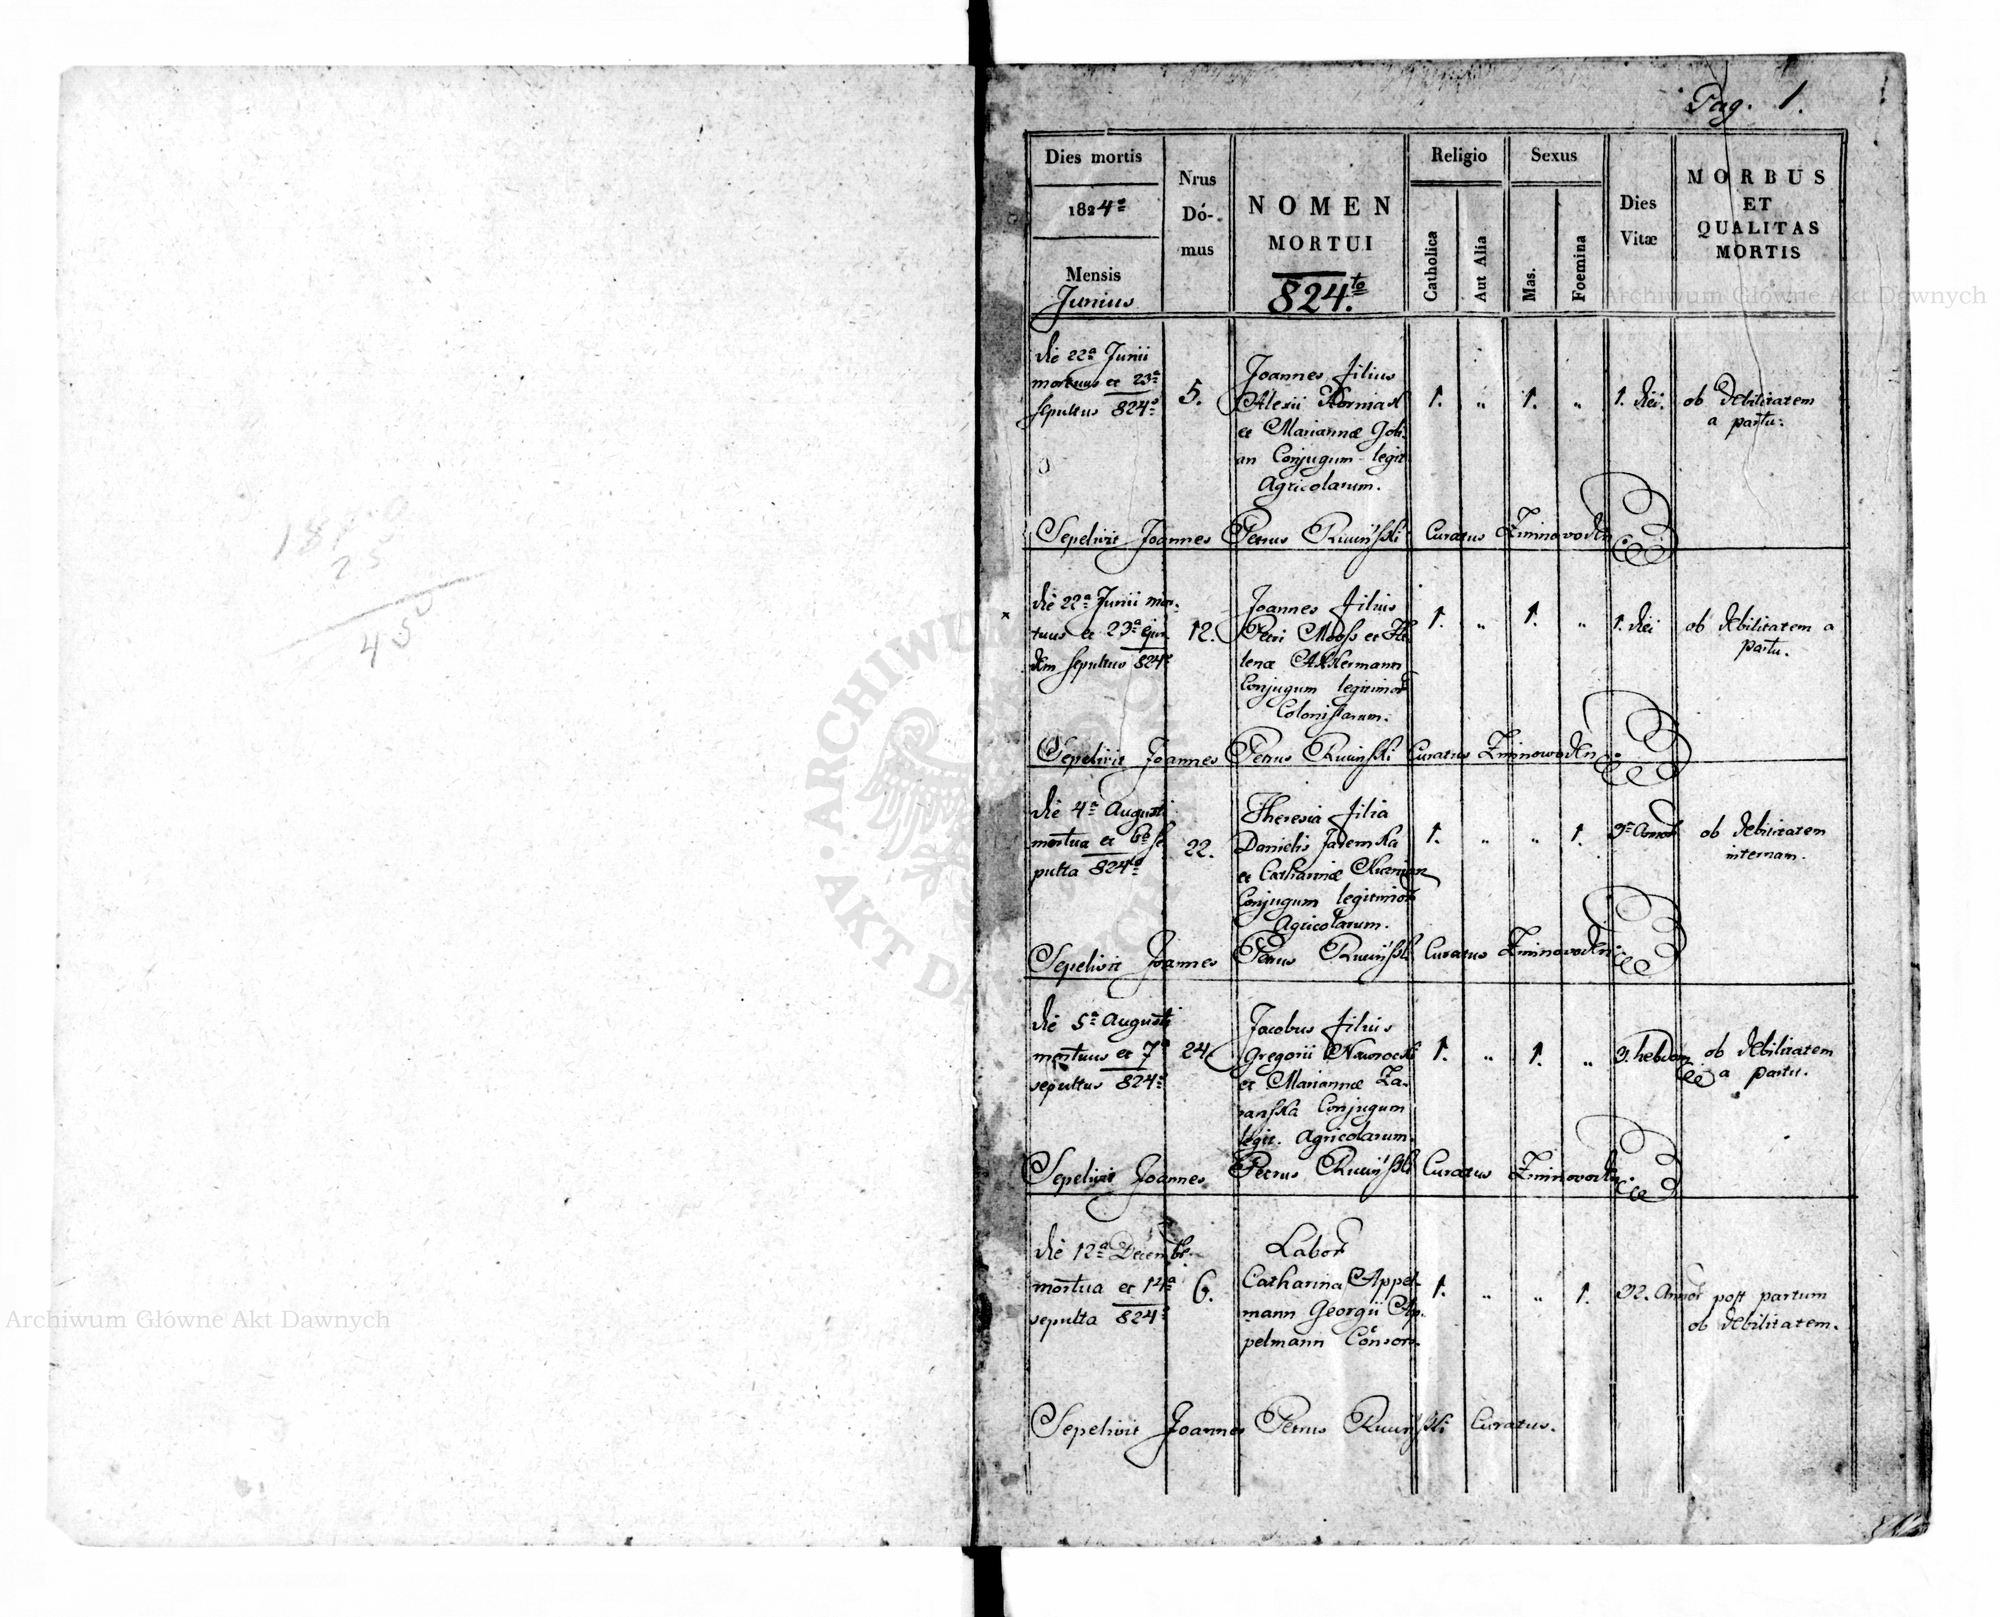 Pag. 1.
Dies mortis
1824º
Mensis
Junius
Nrus
Dó-
mus
NOMEN
MORTUI
824.to
Religio
Catholica
Aut Alia
Sexus
Mas.
Foemina
Dies
Vitæ
MORBUS
ET
QUALITAS
MORTIS
Archiwum Główne Akt Dawnych
die 22a Junii
mortuus et 23a
sepultus 824º
5.
Joannes filius
Alexii Korniak
et Mariannæ
Conjugum legit
Agricolarum.
1. „ 1. „
1. diei.
ob debilitatem
a partu.
Sepelivit Joannes Petrus Curatus
die 22a Junii mor-
tuus et 23a ejus-
dem sepultus 824º
12.
Joannes filius
Petri Mooss et He-
lenæ Akkermann
Conjugum legitimor
Colonistarum.
1. „ 1. „
1. diei
ob debilitatem a
partu.
Sepelivit Joannes Petrus Curatus
die 4a Augusti
mortua et 6a se-
pulta 824to
22.
Theresia filia
Danielis
et Catharinæ
Conjugum legitimor
Agricolarum.
1. „ „ 1.
ob debilitatem
internam.
Sepelivit Joannes Petrus Curatus
die 5a Augusti
mortuus et 7a
sepultus 824º
24.
Jacobus filius
Gregorii Nawrocki
et Mariannæ Za-
Conjugum
legit. Agricolarum.
1. „ 1. „
hebdom
ob debilitatem
a partu.
Sepelivit Joannes Petrus Curatus
die 12a Decembr.
mortua et 14a
sepulta 824º
6.
Labor
Catharina Appel-
mann Georgii Ap-
pelmann Consors.
1. „ „ 1.
32. Annor
post partum
ob debilitatem.
Sepelivit Joannes Petrus Curatus.
25
45
ARCHIWUM GŁÓWNE AKT DAWNYCH
Archiwum Główne Akt Dawnych